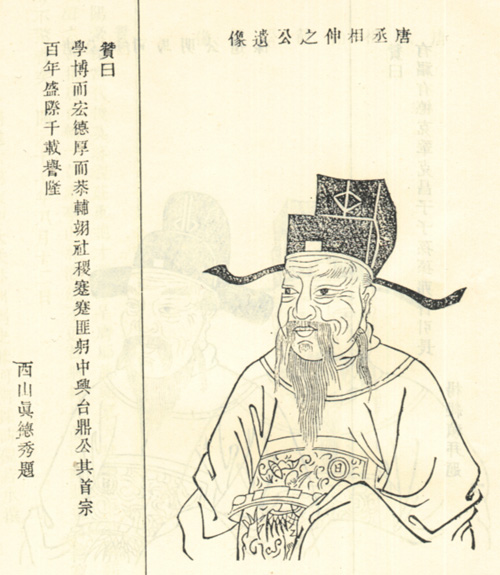 唐丞相伸之公遺像
贊曰
學博而宏德厚而恭輔翊社稷蹇蹇匪躬中興台鼎公其首宗
百年盛際千載譽隆
西山眞德秀題